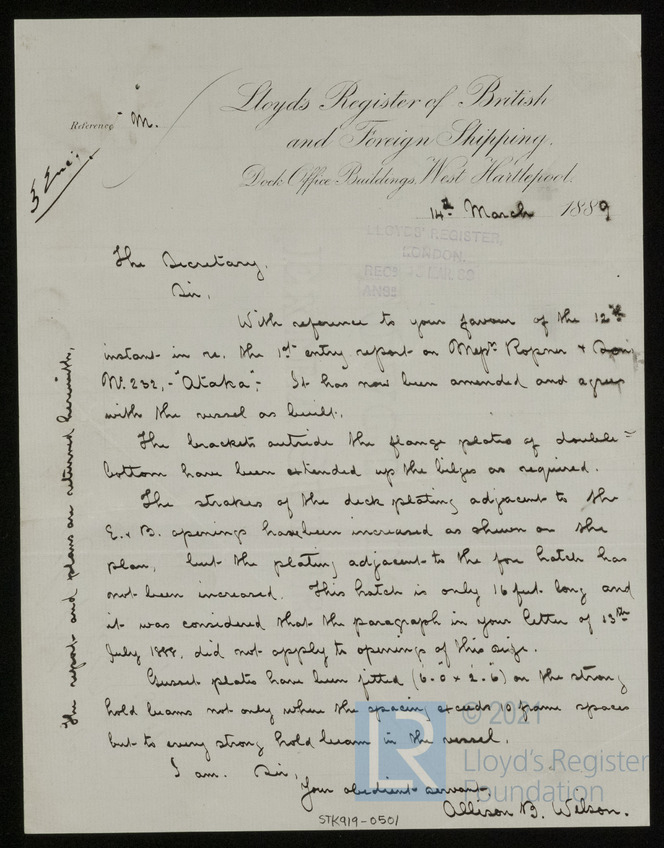 Reference M.
5 Enc:
Lloyds Register of British
and Foreign Shipping.
Dock Office Buildings, West Hartlepool.
14th March 1889
LLOYD'S REGISTER,
LONDON.
REC'D 15 MAR. 89
ANS'D
The Secretary.
Sir,
With reference to your favour of the 12th
instant in re. the 1st entry report on Messrs. Ropner & Son's
No. 232, - "Ataka", - It has now been amended and agrees
with the vessel as built.
The brackets outside the flange plates of double
bottom have been extended up the bilges as required.
The strakes of the deck plating adjacent to the
E. & B. openings have been increased as shewn on the
plan, but the plating adjacent to the fore hatch has
not been increased. This hatch is only 16 feet long and
it was considered that the paragraph in your letter of 13th
July 1888, did not apply to openings of this size.
Gusset plates have been fitted (6.0 x 2.6) on the strong
hold beams not only where the spacing exceeds 10 frame spaces
but to every strong hold beam in the vessel.
I am. Sir,
Your obedient servant,
Allison B. Wilson.
The report and plans are returned herewith.
STK919-0501
LR
© 2021
Lloyd's Register
Foundation